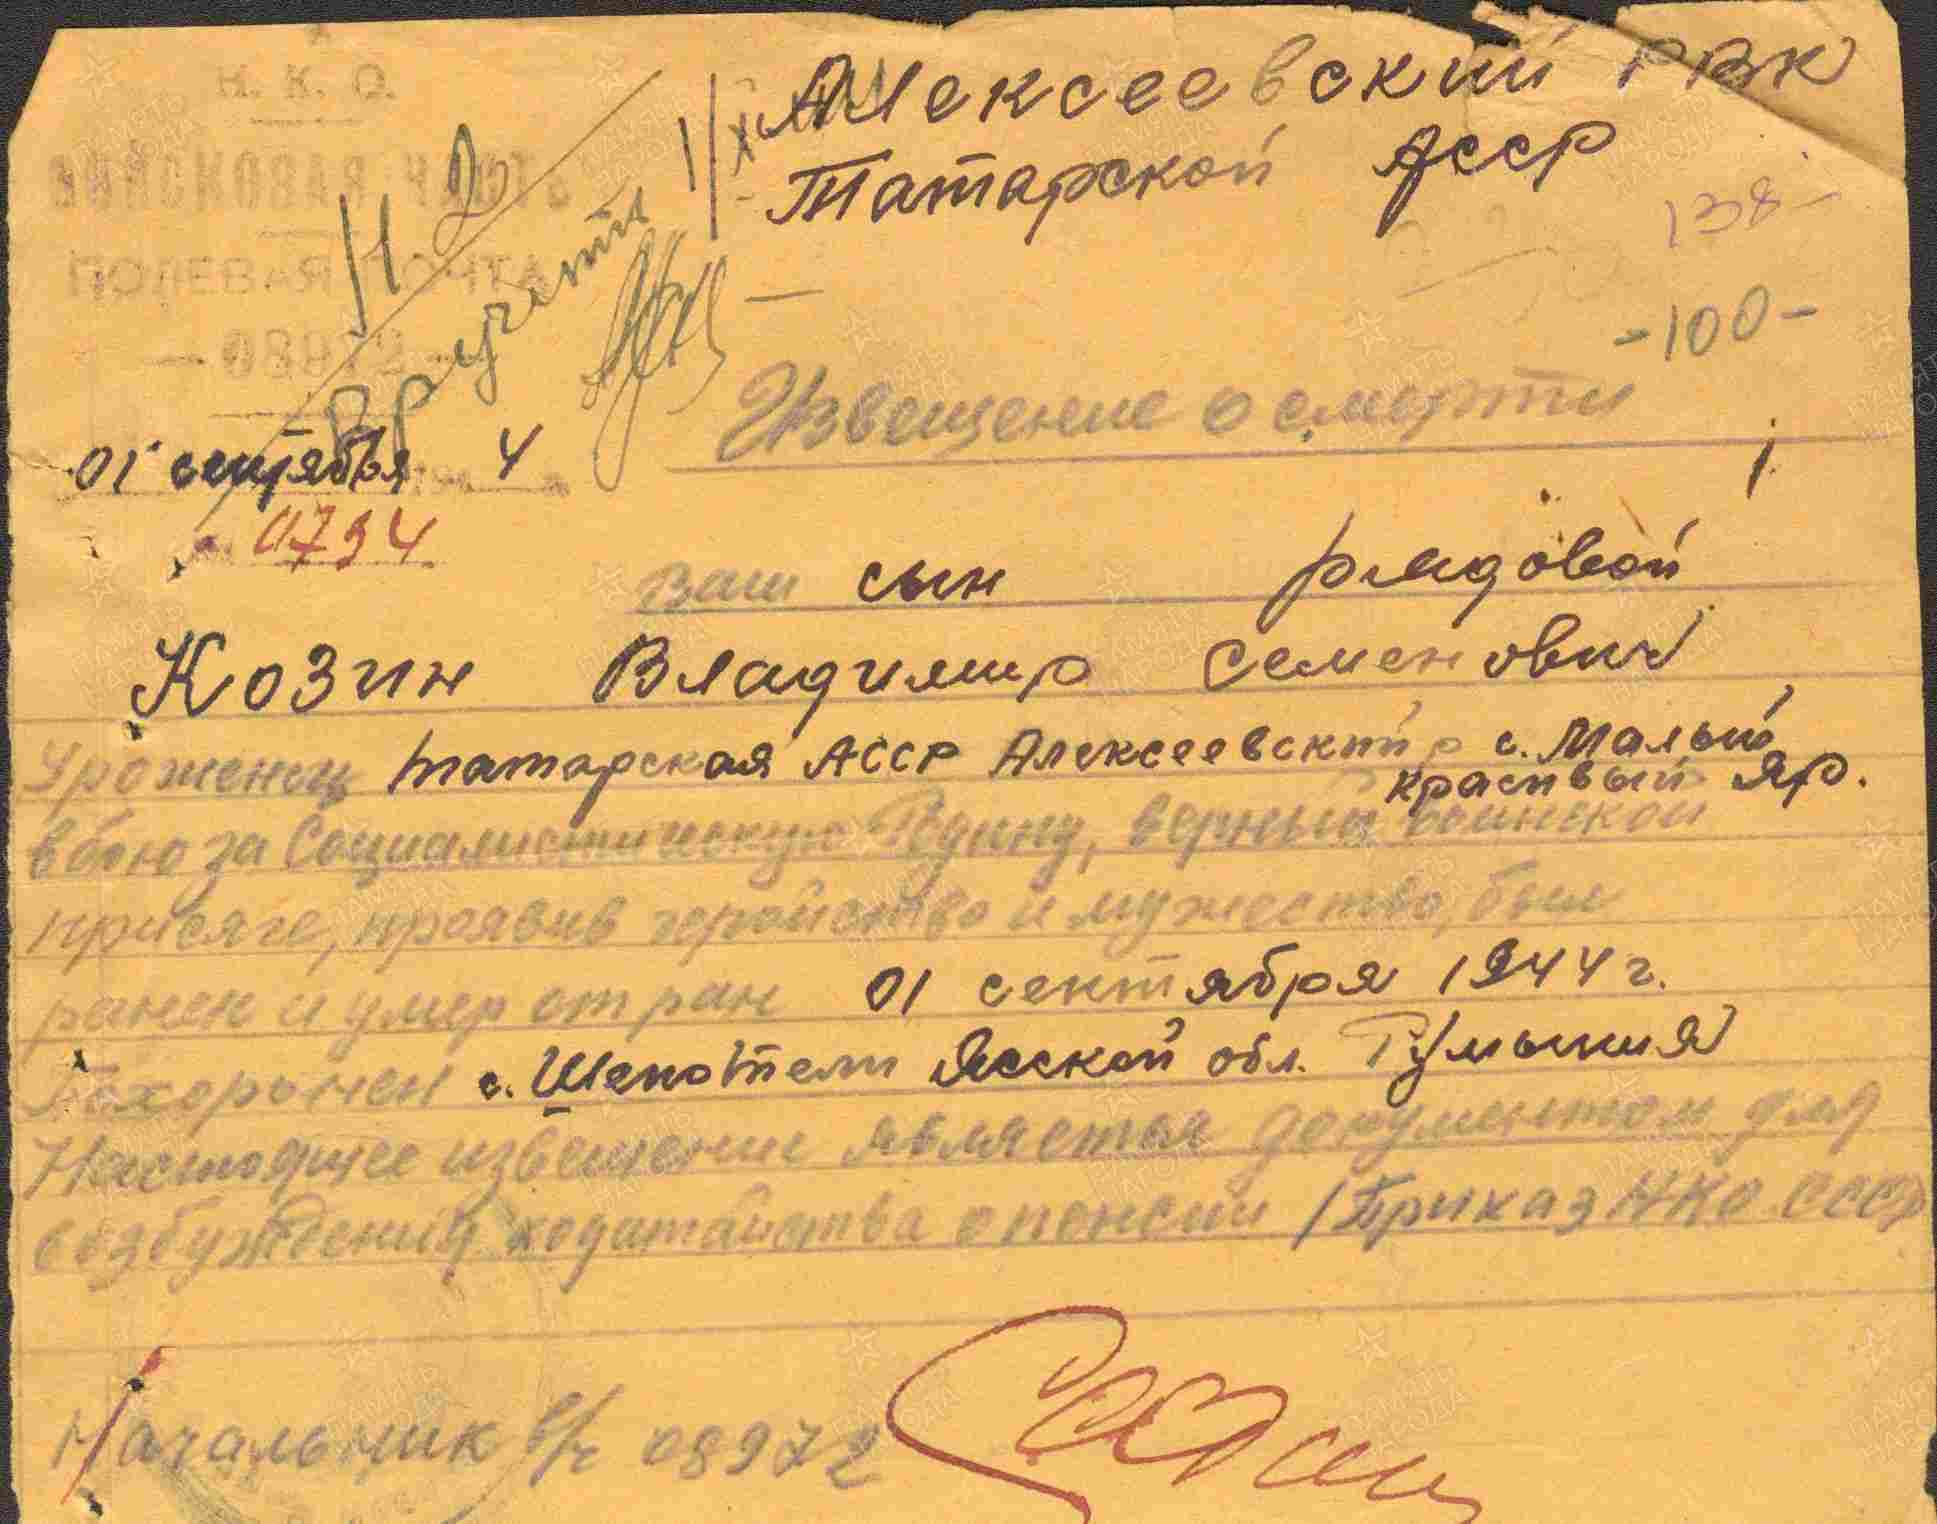 Алексеевский РВК
Татарской АССР
Н. К. О.
ВОЙСКОВАЯ ЧАСТЬ
ПОЛЕВАЯ ПОЧТА
— 08972 —
Н 2
Вручить
138-
-100-
Извещение о смерти
01 сентября 4
0794
1.
Ваш сын рядовой
Козин Владимир Семенович
Уроженец татарская АССР Алексеевский р с. Малый
красивый яр.
в бою за Социалистическую Родину, верный воинской
присяге, проявив геройство и мужество, был
ранен и умер от ран 01 сентября 1944 г.
Похоронен с. Шекотели Ясской обл. Румыния
Настоящее извещение является документом для
возбуждения ходатайства о пенсии /Приказ НКО СССР
Начальник в/ч 08972